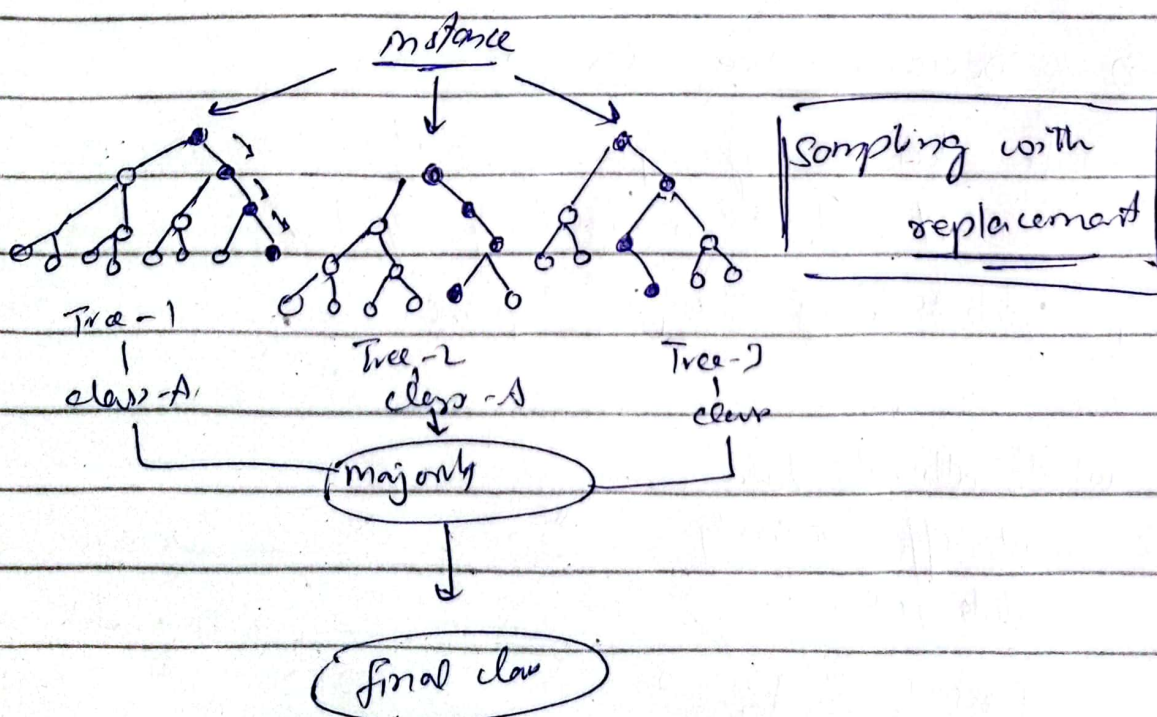 instance
sampling with
replacement
Tree-1
Tree-2
Tree-3
class-A
class-A
class
majority
final class